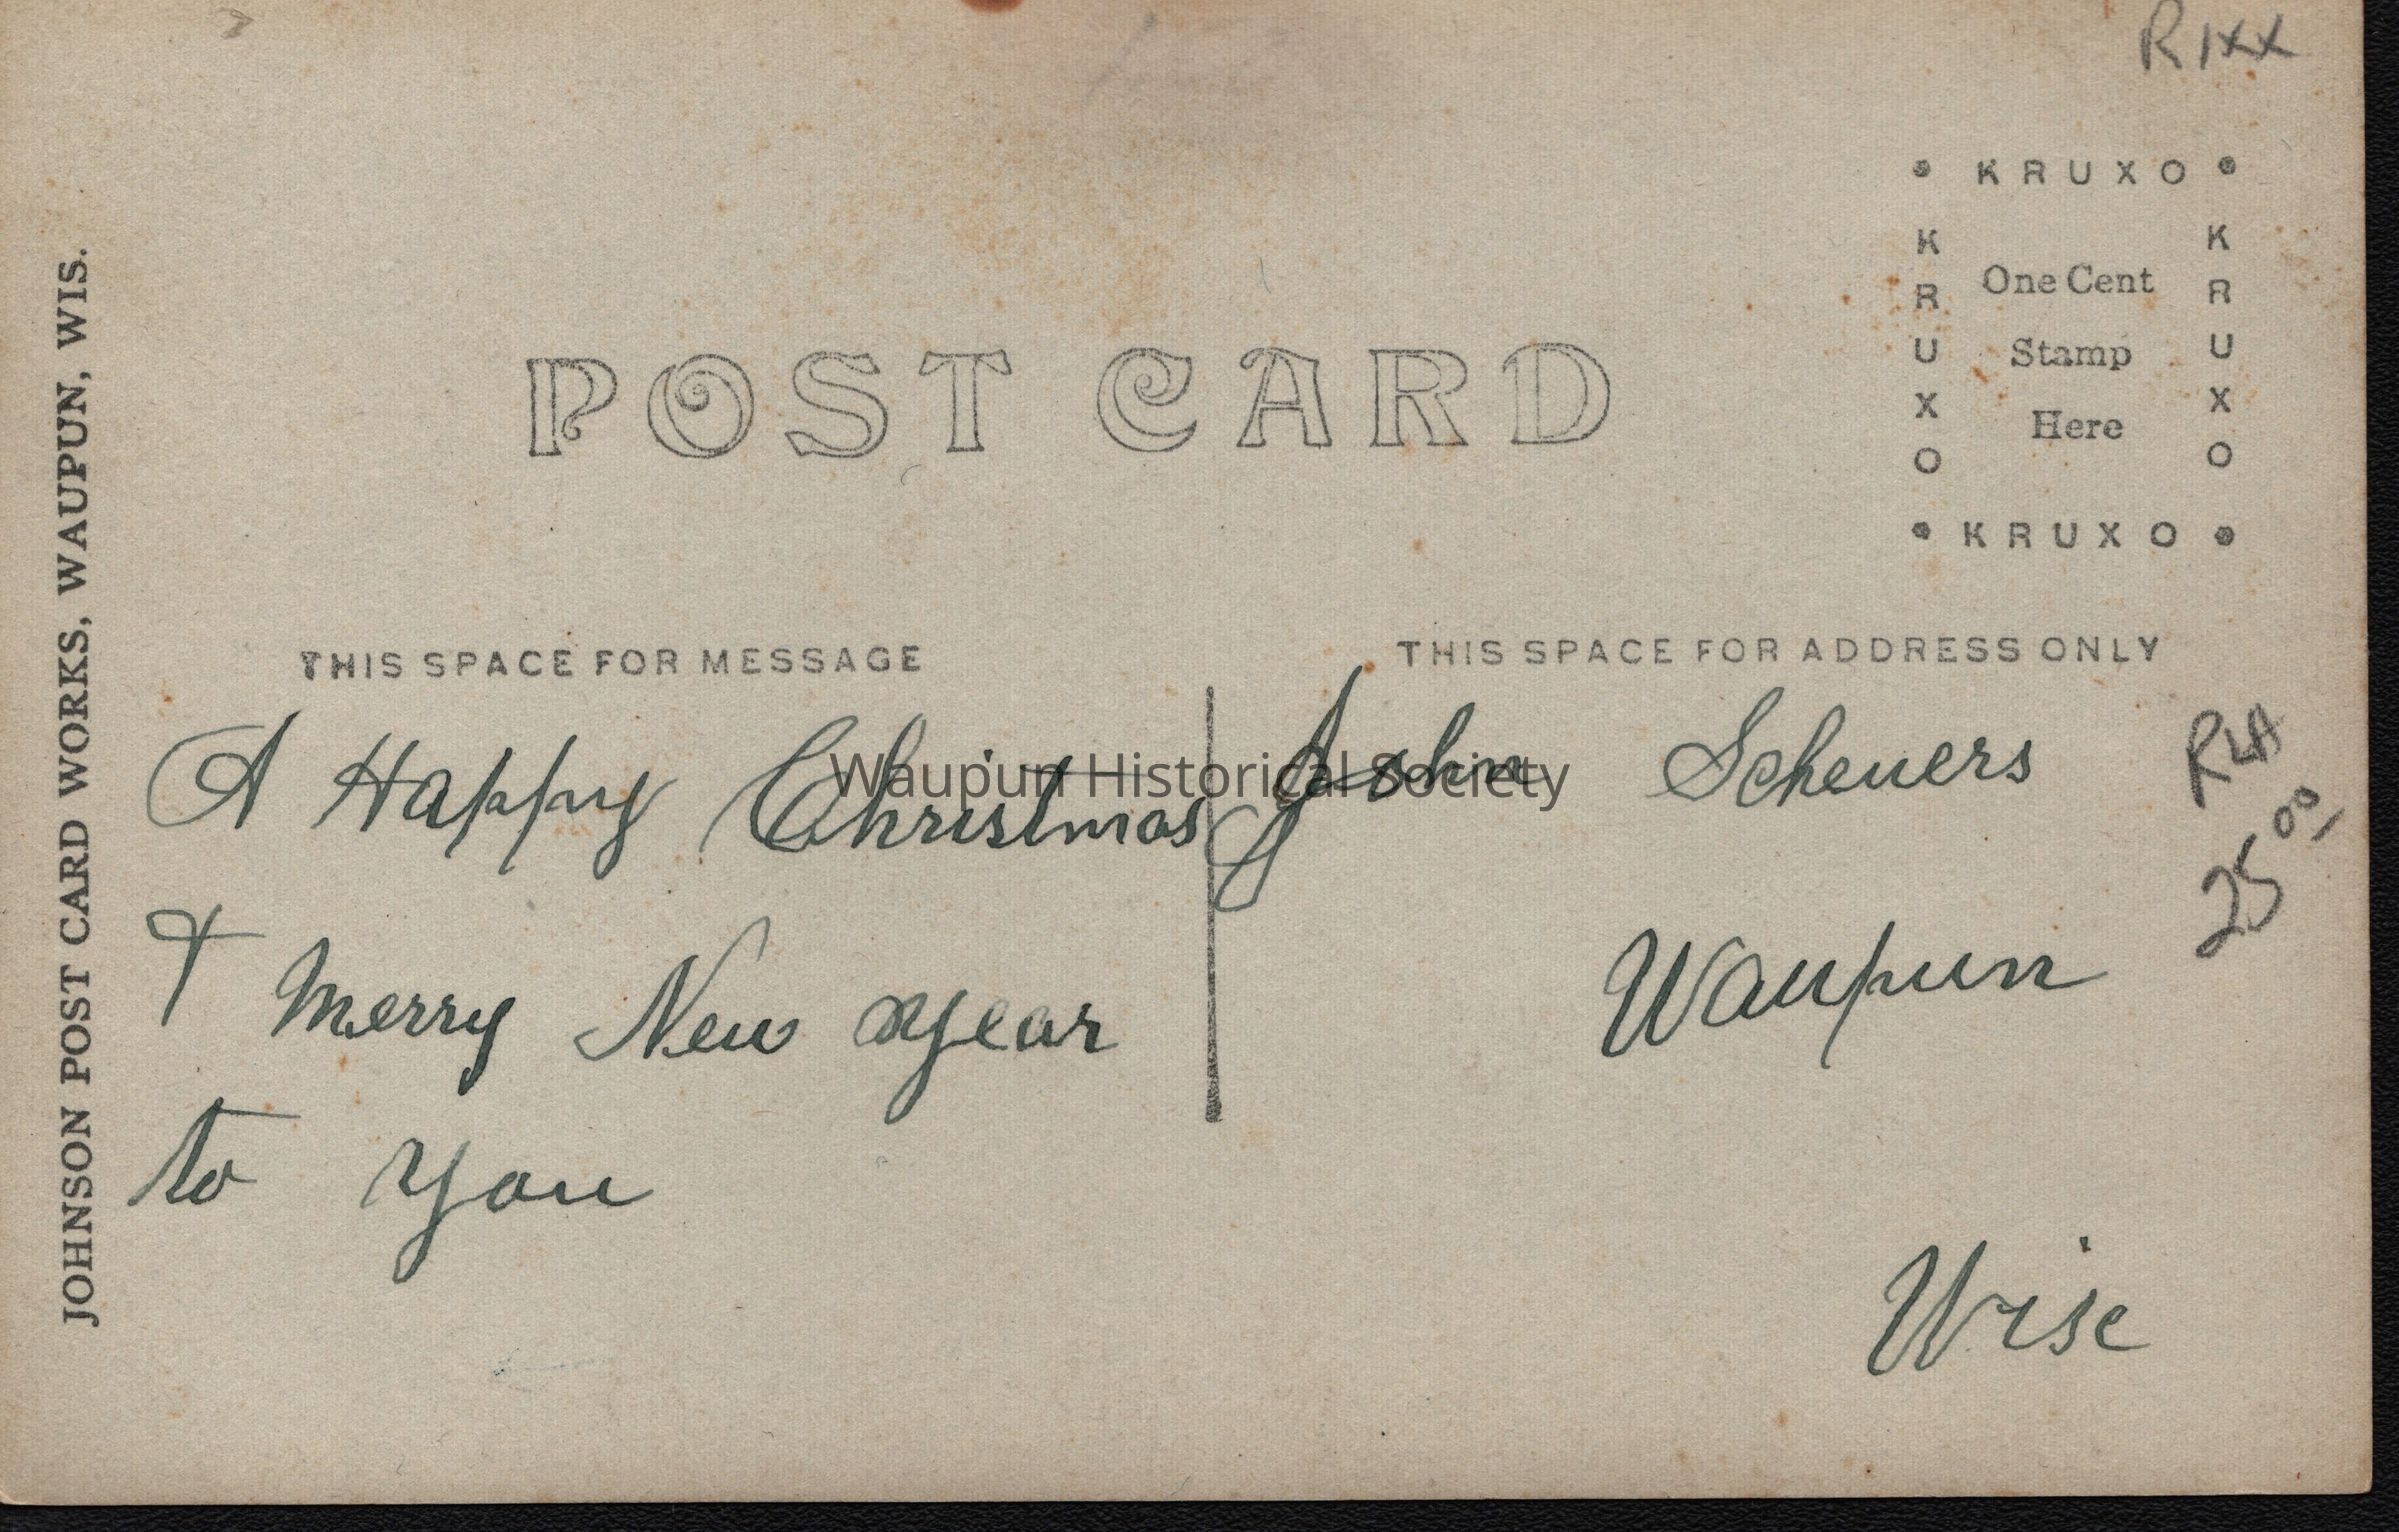 R 1XX
• KRUXO •
KRUXO
One Cent
Stamp
Here
KRUXO
• KRUXO •
POST CARD
JOHNSON POST CARD WORKS, WAUPUN, WIS.
THIS SPACE FOR MESSAGE
A Happy Christmas
& Merry New Year
to you
THIS SPACE FOR ADDRESS ONLY
John Scheuers
Waupun
Wisc
25 00
Waupun Historical Society